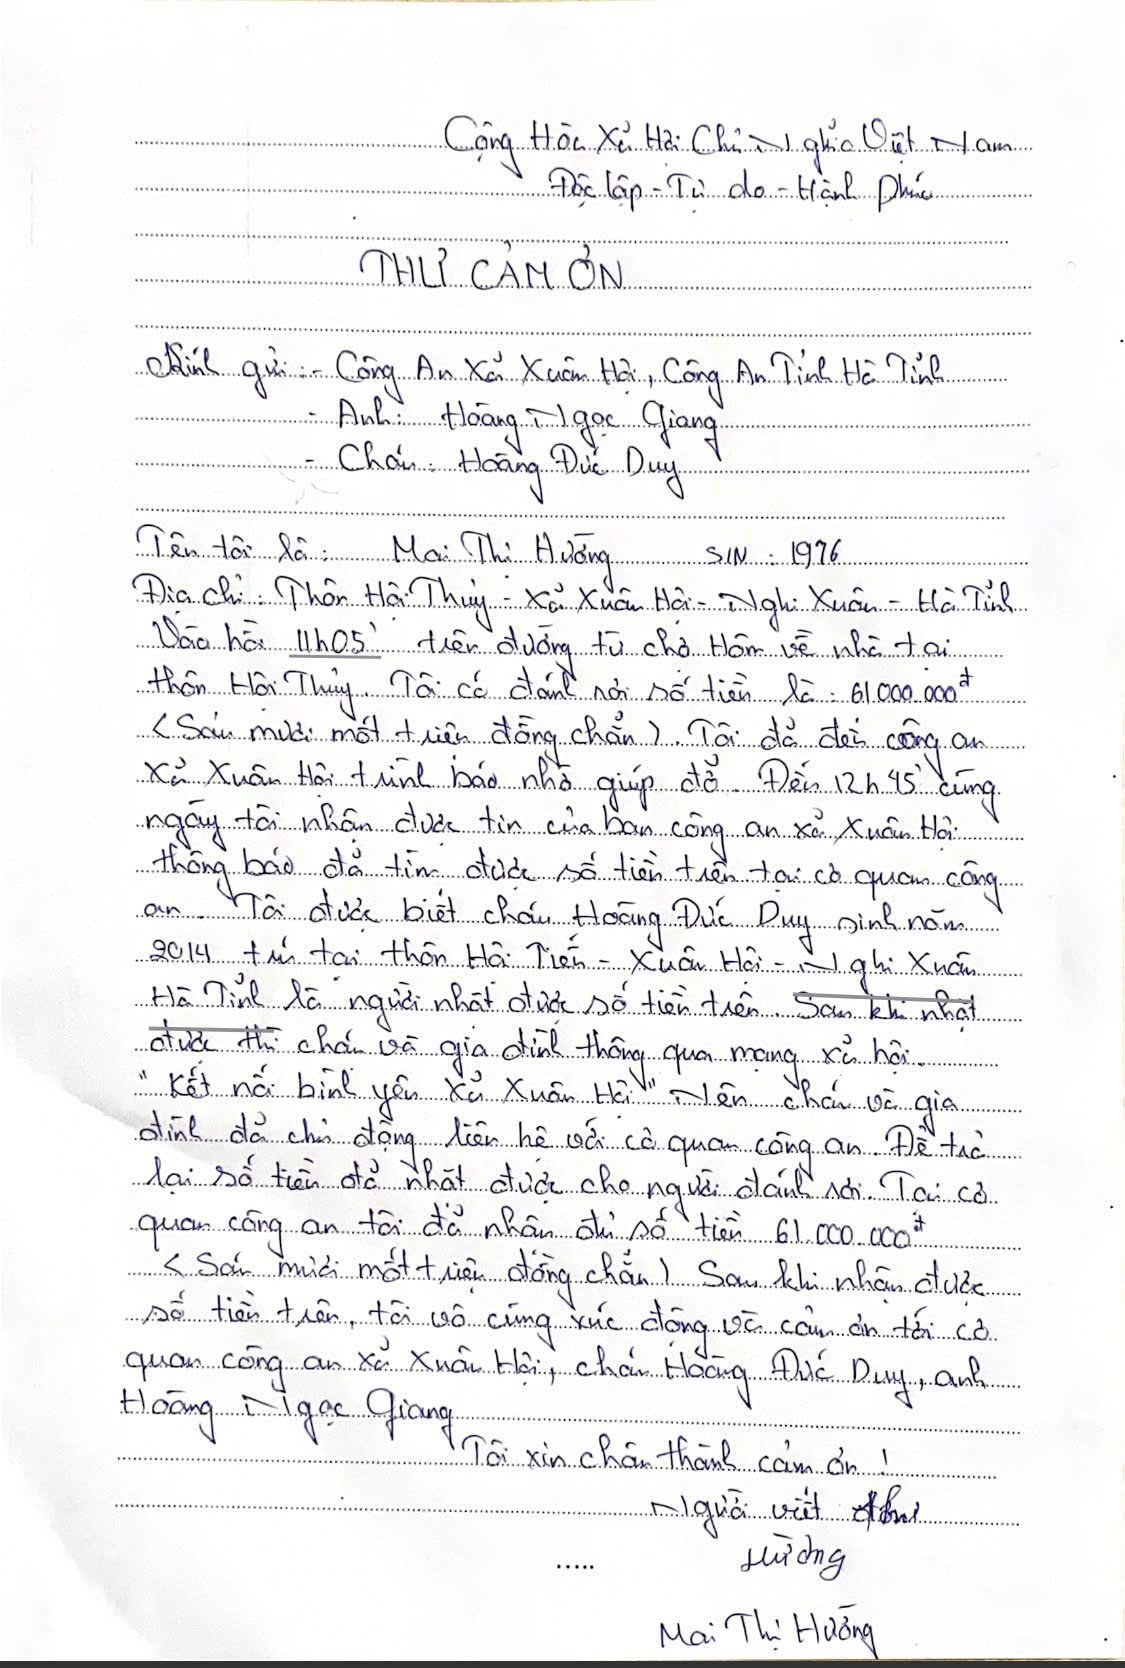 Cộng Hòa Xã Hội Chủ Nghĩa Việt Nam
Độc lập - Tự do - Hạnh phúc
THƯ CẢM ƠN
Kính gửi: - Công An Xã Xuân Hội, Công An Tỉnh Hà Tĩnh
- Anh: Hoàng Ngọc Giang
- Cháu: Hoàng Đức Duy
Tên tôi là: Mai Thị Hường SIN: 1976
Địa chỉ: Thôn Hội Thủy - Xã Xuân Hội - Nghi Xuân - Hà Tĩnh
Vào hồi 11h05' trên đường từ chợ Hôm về nhà tại
thôn Hội Thủy. Tôi có đánh rơi số tiền là: 61.000.000đ
< Sáu mươi mốt triệu đồng chẵn). Tôi đã đến công an
xã Xuân Hội trình báo nhờ giúp đỡ. Đến 12h45' cùng
ngày tôi nhận được tin của ban công an xã Xuân Hội
thông báo đã tìm được số tiền trên tại cơ quan công
an. Tôi được biết cháu Hoàng Đức Duy sinh năm
2014 trú tại thôn Hội Tiến - Xuân Hội - Nghi Xuân
Hà Tĩnh là người nhặt được số tiền trên. Sau khi nhặt
được thì cháu và gia đình thông qua mạng xã hội.
"Kết nối bình yên xã Xuân Hội" Nên cháu và gia
đình đã chủ động liên hệ với cơ quan công an. Để trả
lại số tiền đã nhặt được cho người đánh rơi. Tại cơ
quan công an tôi đã nhận đủ số tiền 61.000.000đ
< Sáu mươi mốt triệu đồng chẵn) Sau khi nhận được
số tiền trên, tôi vô cùng xúc động và cảm ơn tới cơ
quan công an xã Xuân Hội, cháu Hoàng Đức Duy, anh
Hoàng Ngọc Giang
Tôi xin chân thành cảm ơn!
Người viết thư
Hường
.....
Mai Thị Hường